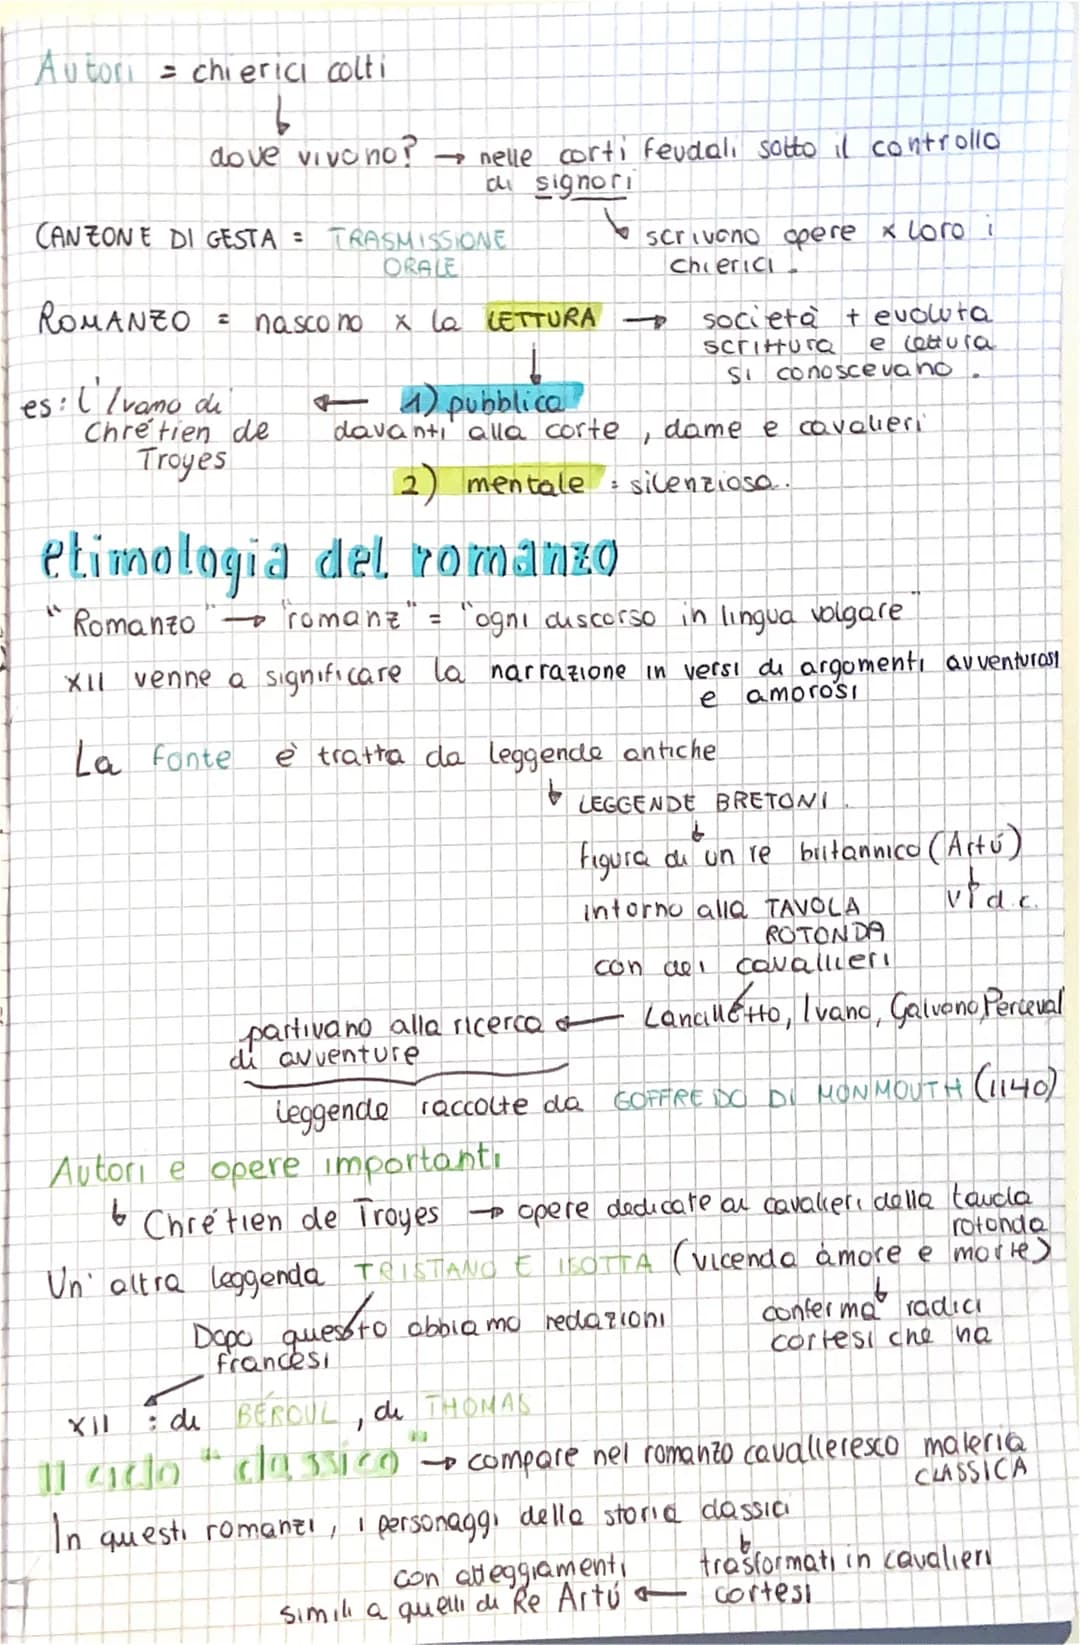 Autori = chierici colti
dove vivono? → nelle corti feudali sotto il controllo
di signori
scrivono opere x loro i
chierici.
CANZONE DI GESTA = TRASMISSIONE
ORALE
ROMANZO = nascono x la LETTURA → società + evoluta
scrittura e lettura
si conoscevano.
1) pubblica
davanti alla corte, dame e cavalieri
es: l'Ivano di
Chrétien de
Troyes
2) mentale = silenziosa.
etimologia del romanzo
"Romanzo" → "romanz" = "ogni discorso in lingua volgare"
XII venne a significare la narrazione in versi di argomenti avventurosi
e amorosi
La fonte è tratta da leggende antiche
LEGGENDE BRETONI.
figura di un re britannico (Artù)
VI d.c.
intorno alla TAVOLA
ROTONDA
con dei cavalieri
partivano alla ricerca ← Lancillotto, Ivano, Galvano, Perceval
di avventure
leggende raccolte da GOFFREDO DI MONMOUTH (1140)
Autori e opere importanti
Chrétien de Troyes → opere dedicate ai cavalieri della tavola
rotonda
Un'altra leggenda TRISTANO E ISOTTA (vicenda amore e morte)
conferma radici
cortesi che ha
Dopo questo abbiamo redazioni
francesi
XII : di BÉROUL, di THOMAS
Il ciclo "classico" → compare nel romanzo cavalleresco materia
CLASSICA
In questi romanzi, i personaggi della storia classici
trasformati in cavalieri
cortesi
con atteggiamenti
simili a quelli di Re Artù ←